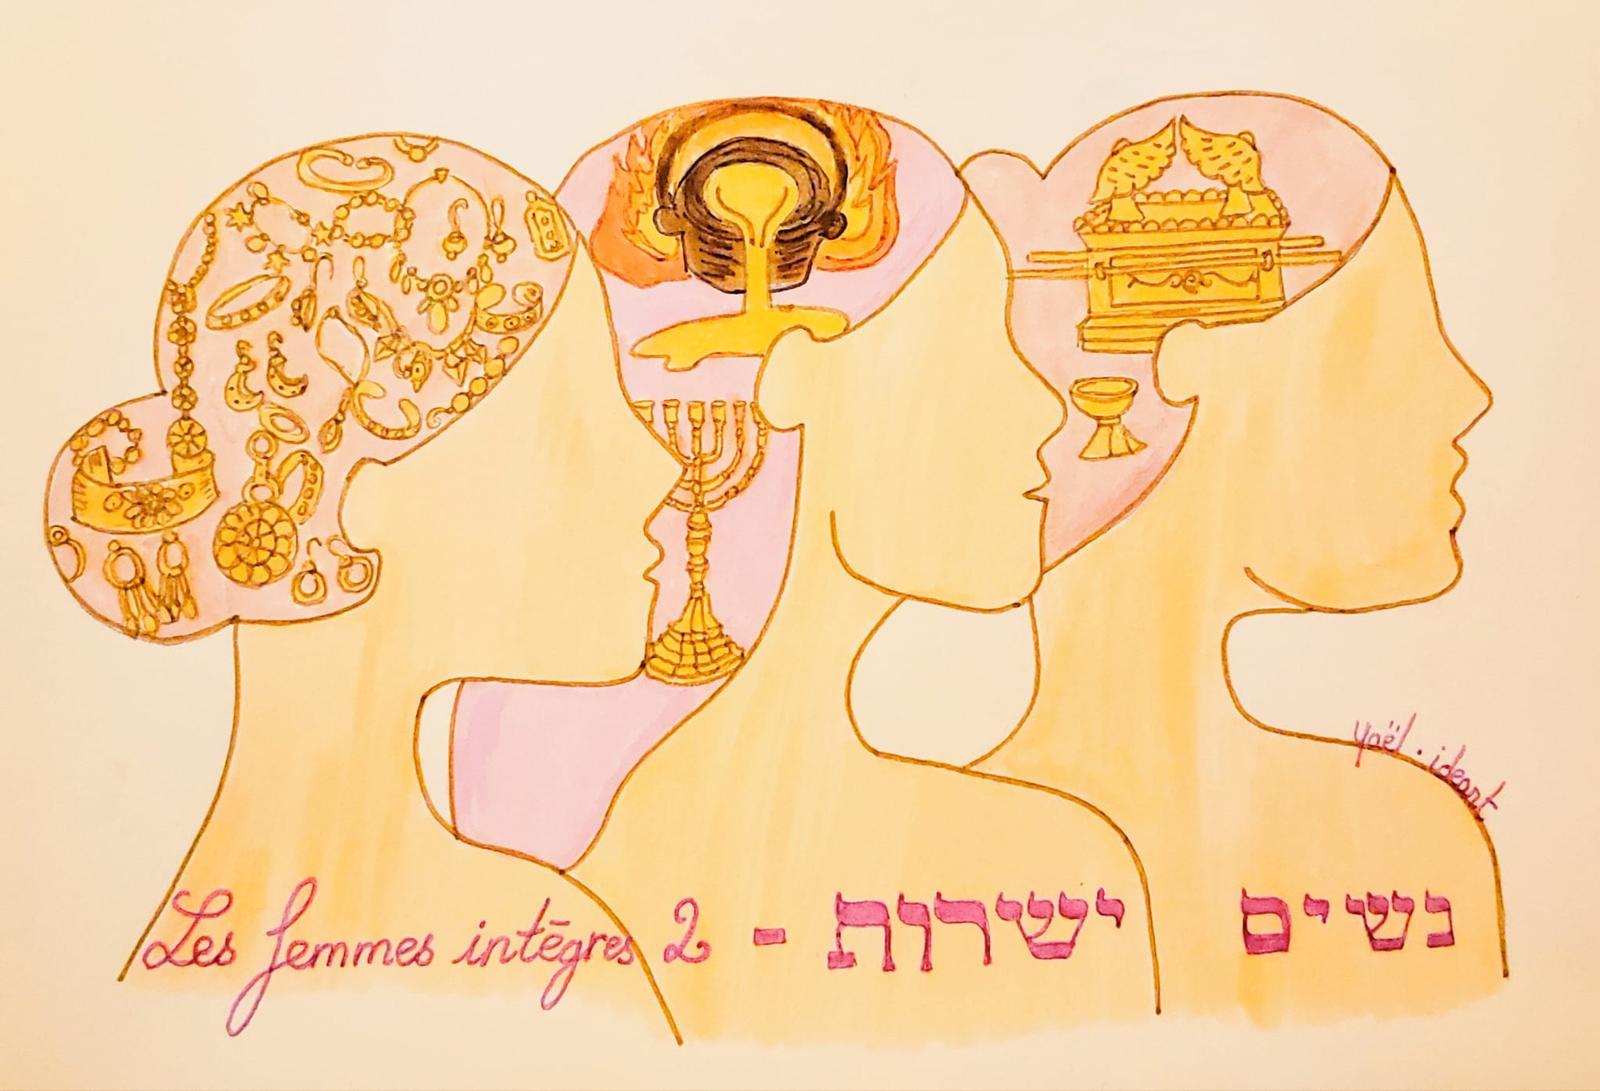 Yaël . ideart
Les femmes intègres 2 - נשים ישרות